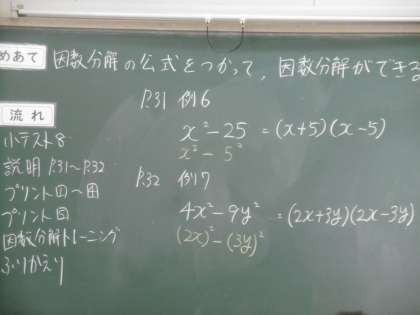 めあて 因数分解の公式をつかって、因数分解ができる
流れ
小テスト8
説明 P.31〜P.32
プリント
プリント
因数分解トレーニング
ふりかえり
P.31 例6
x²-25 = (x+5)(x-5)
x² - 5²
P.32 例7
4x²-9y² = (2x+3y)(2x-3y)
(2x)²-(3y)²